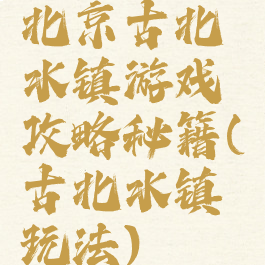 北京古北
水镇游戏
攻略秘籍(
古北水镇
玩法)